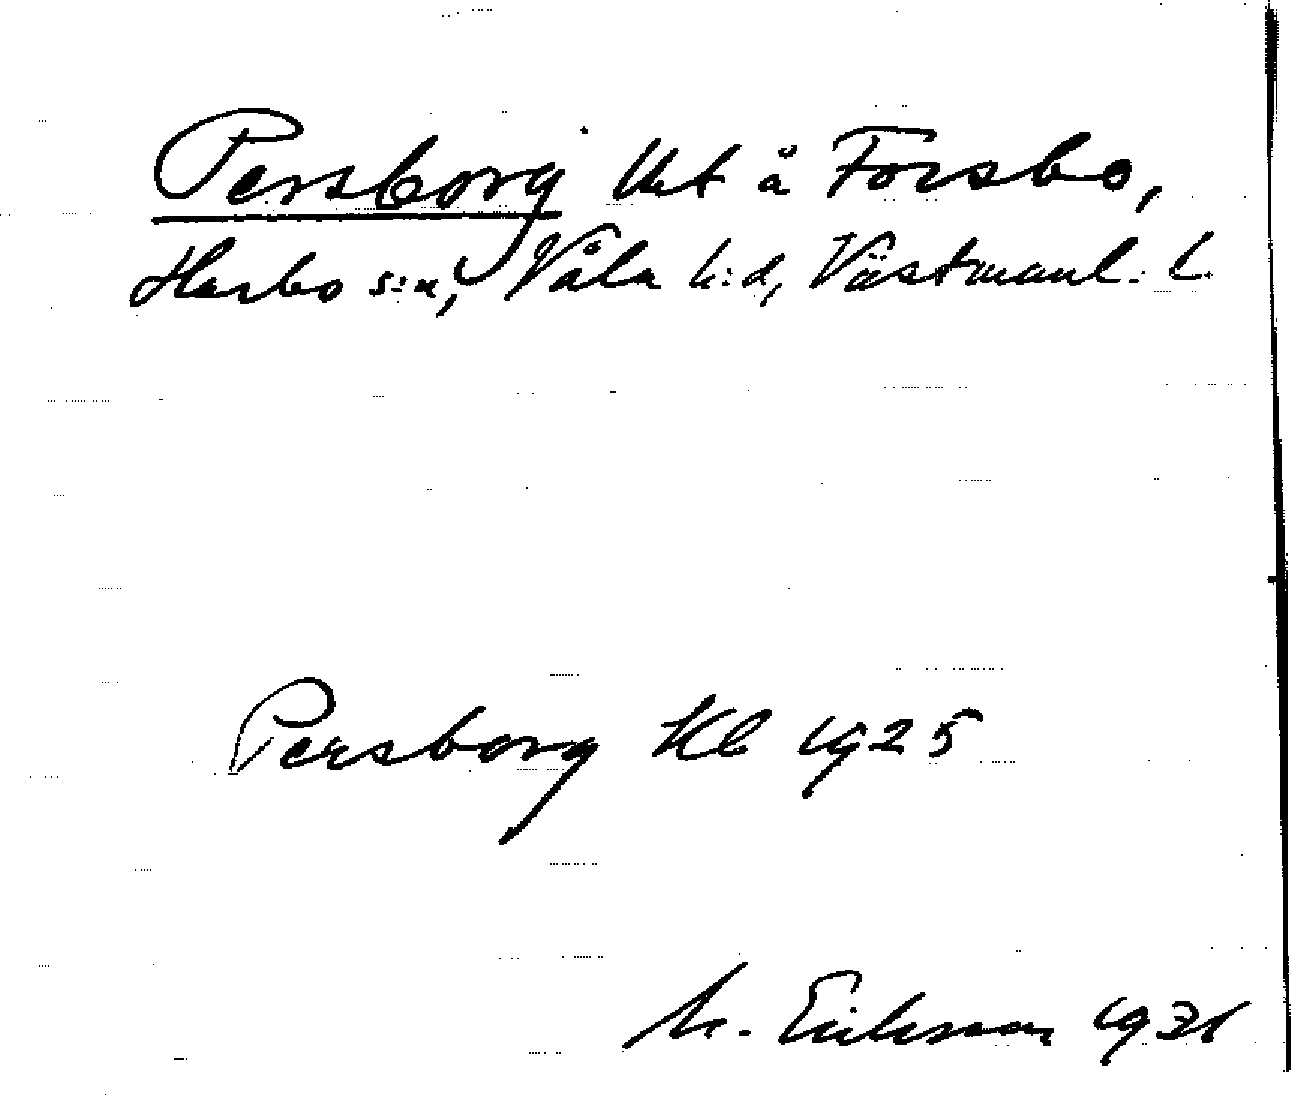 Persborg Uet å Forsbo,
Harbo s:n, Våla h:d, Västmanl. l.
Persborg Kl 1925
M. Eriksson 1931